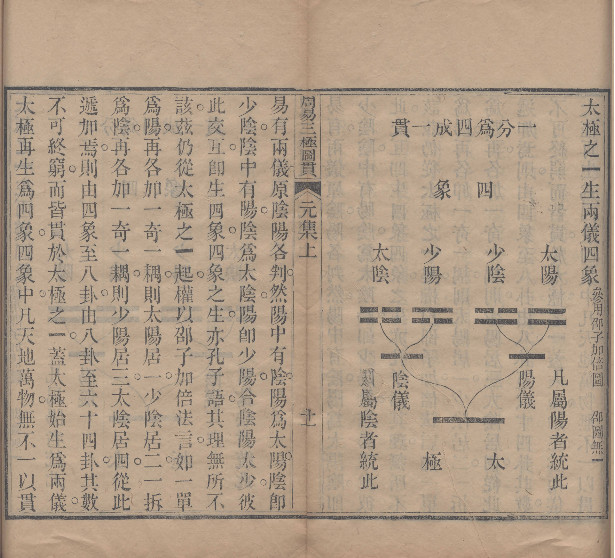 太極之一生兩儀四象 參用邵子加倍圖 邵圖無一
一分爲四成一貫
四象
太陽
少陰
少陽
太陰
凡屬陽者統此
陽儀
太極
陰儀
凡屬陰者統此
周易三極圖貫 元集上 十一
易有兩儀原陰陽各判然陽中有陰陽爲太陽陰卽
少陰陰中有陽陰爲太陰陽卽少陽合陰陽太少彼
此交互卽生四象四象之生亦孔子語其理無所不
該茲仍從太極之一起權以邵子加倍法言如一單
爲陽再各加一奇一耦則太陽居一少陰居二一拆
爲陰再各加一奇一耦則少陽居三太陰居四從此
遞加焉則由四象至八卦由八卦至六十四卦其數
不可終窮而皆貫於太極之一蓋太極始生爲兩儀
太極再生爲四象四象中凡天地萬物無不一以貫